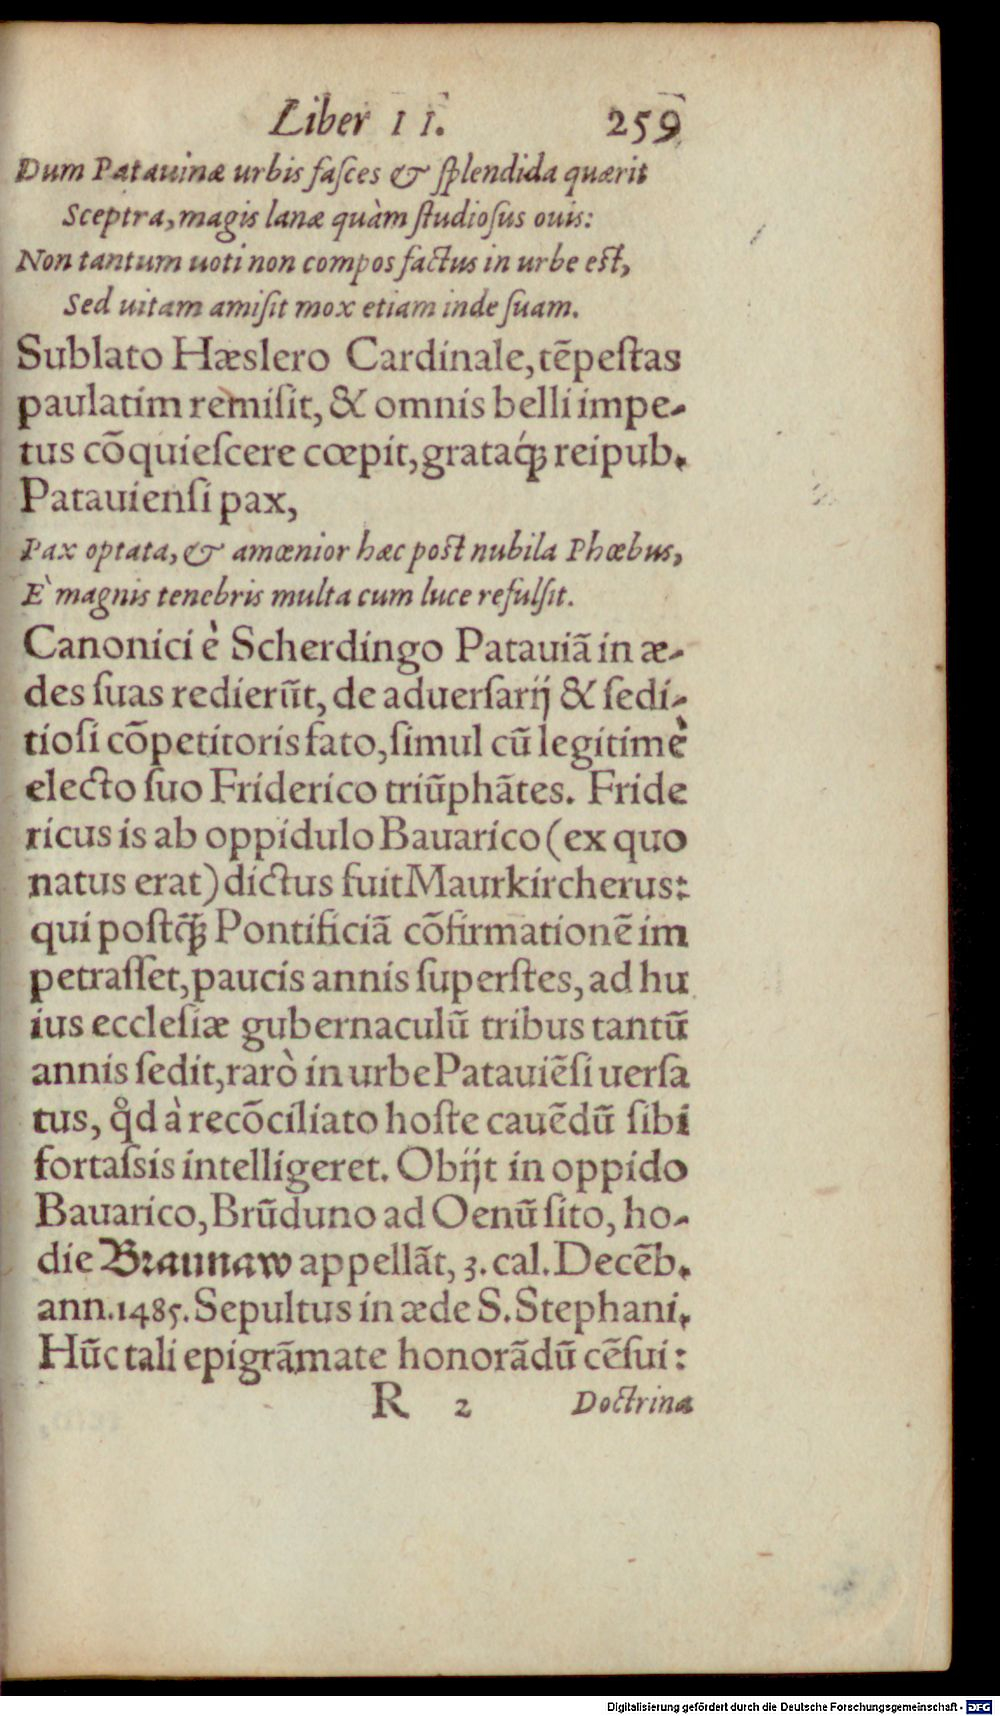 Liber II. 259
Dum Patauinæ urbis faſces & ſplendida quærit
Sceptra, magis lanæ quàm ſtudioſus ouis:
Non tantum uoti non compos factus in urbe eſt,
Sed uitam amiſit mox etiam inde ſuam.
Sublato Hæslero Cardinale, tẽpeſtas
paulatim remiſit, & omnis belli impe-
tus cõquieſcere cœpit, grataq́ꝫ reipub.
Patauienſi pax,
Pax optata, & amœnior hæc poſt nubila Phœbus,
È magnis tenebris multa cum luce refulſit.
Canonici è Scherdingo Patauiã in æ-
des ſuas redierũt, de aduerſarij & ſedi-
tioſi cõpetitoris fato, ſimul cũ legitimè
electo ſuo Friderico triũphãtes. Fride
ricus is ab oppidulo Bauarico (ex quo
natus erat) dictus fuit Maurkircherus:
qui poſtq̃ꝫ Pontificiã cõfirmationẽ im
petraſſet, paucis annis ſuperſtes, ad hu
ius eccleſiæ gubernaculũ tribus tantũ
annis ſedit, rarò in urbe Patauiẽſi uerſa
tus, qd̊ à recõciliato hoſte cauẽdũ ſibi
fortaſsis intelligeret. Obijt in oppido
Bauarico, Brũduno ad Oenũ ſito, ho-
die Braunaw appellãt, 3. cal. Decẽb.
ann. 1485. Sepultus in æde S. Stephani,
Hũc tali epigrãmate honorãdũ cẽſui:
R 2 Doctrina
Digitalisierung gefördert durch die Deutsche Forschungsgemeinschaft - DFG